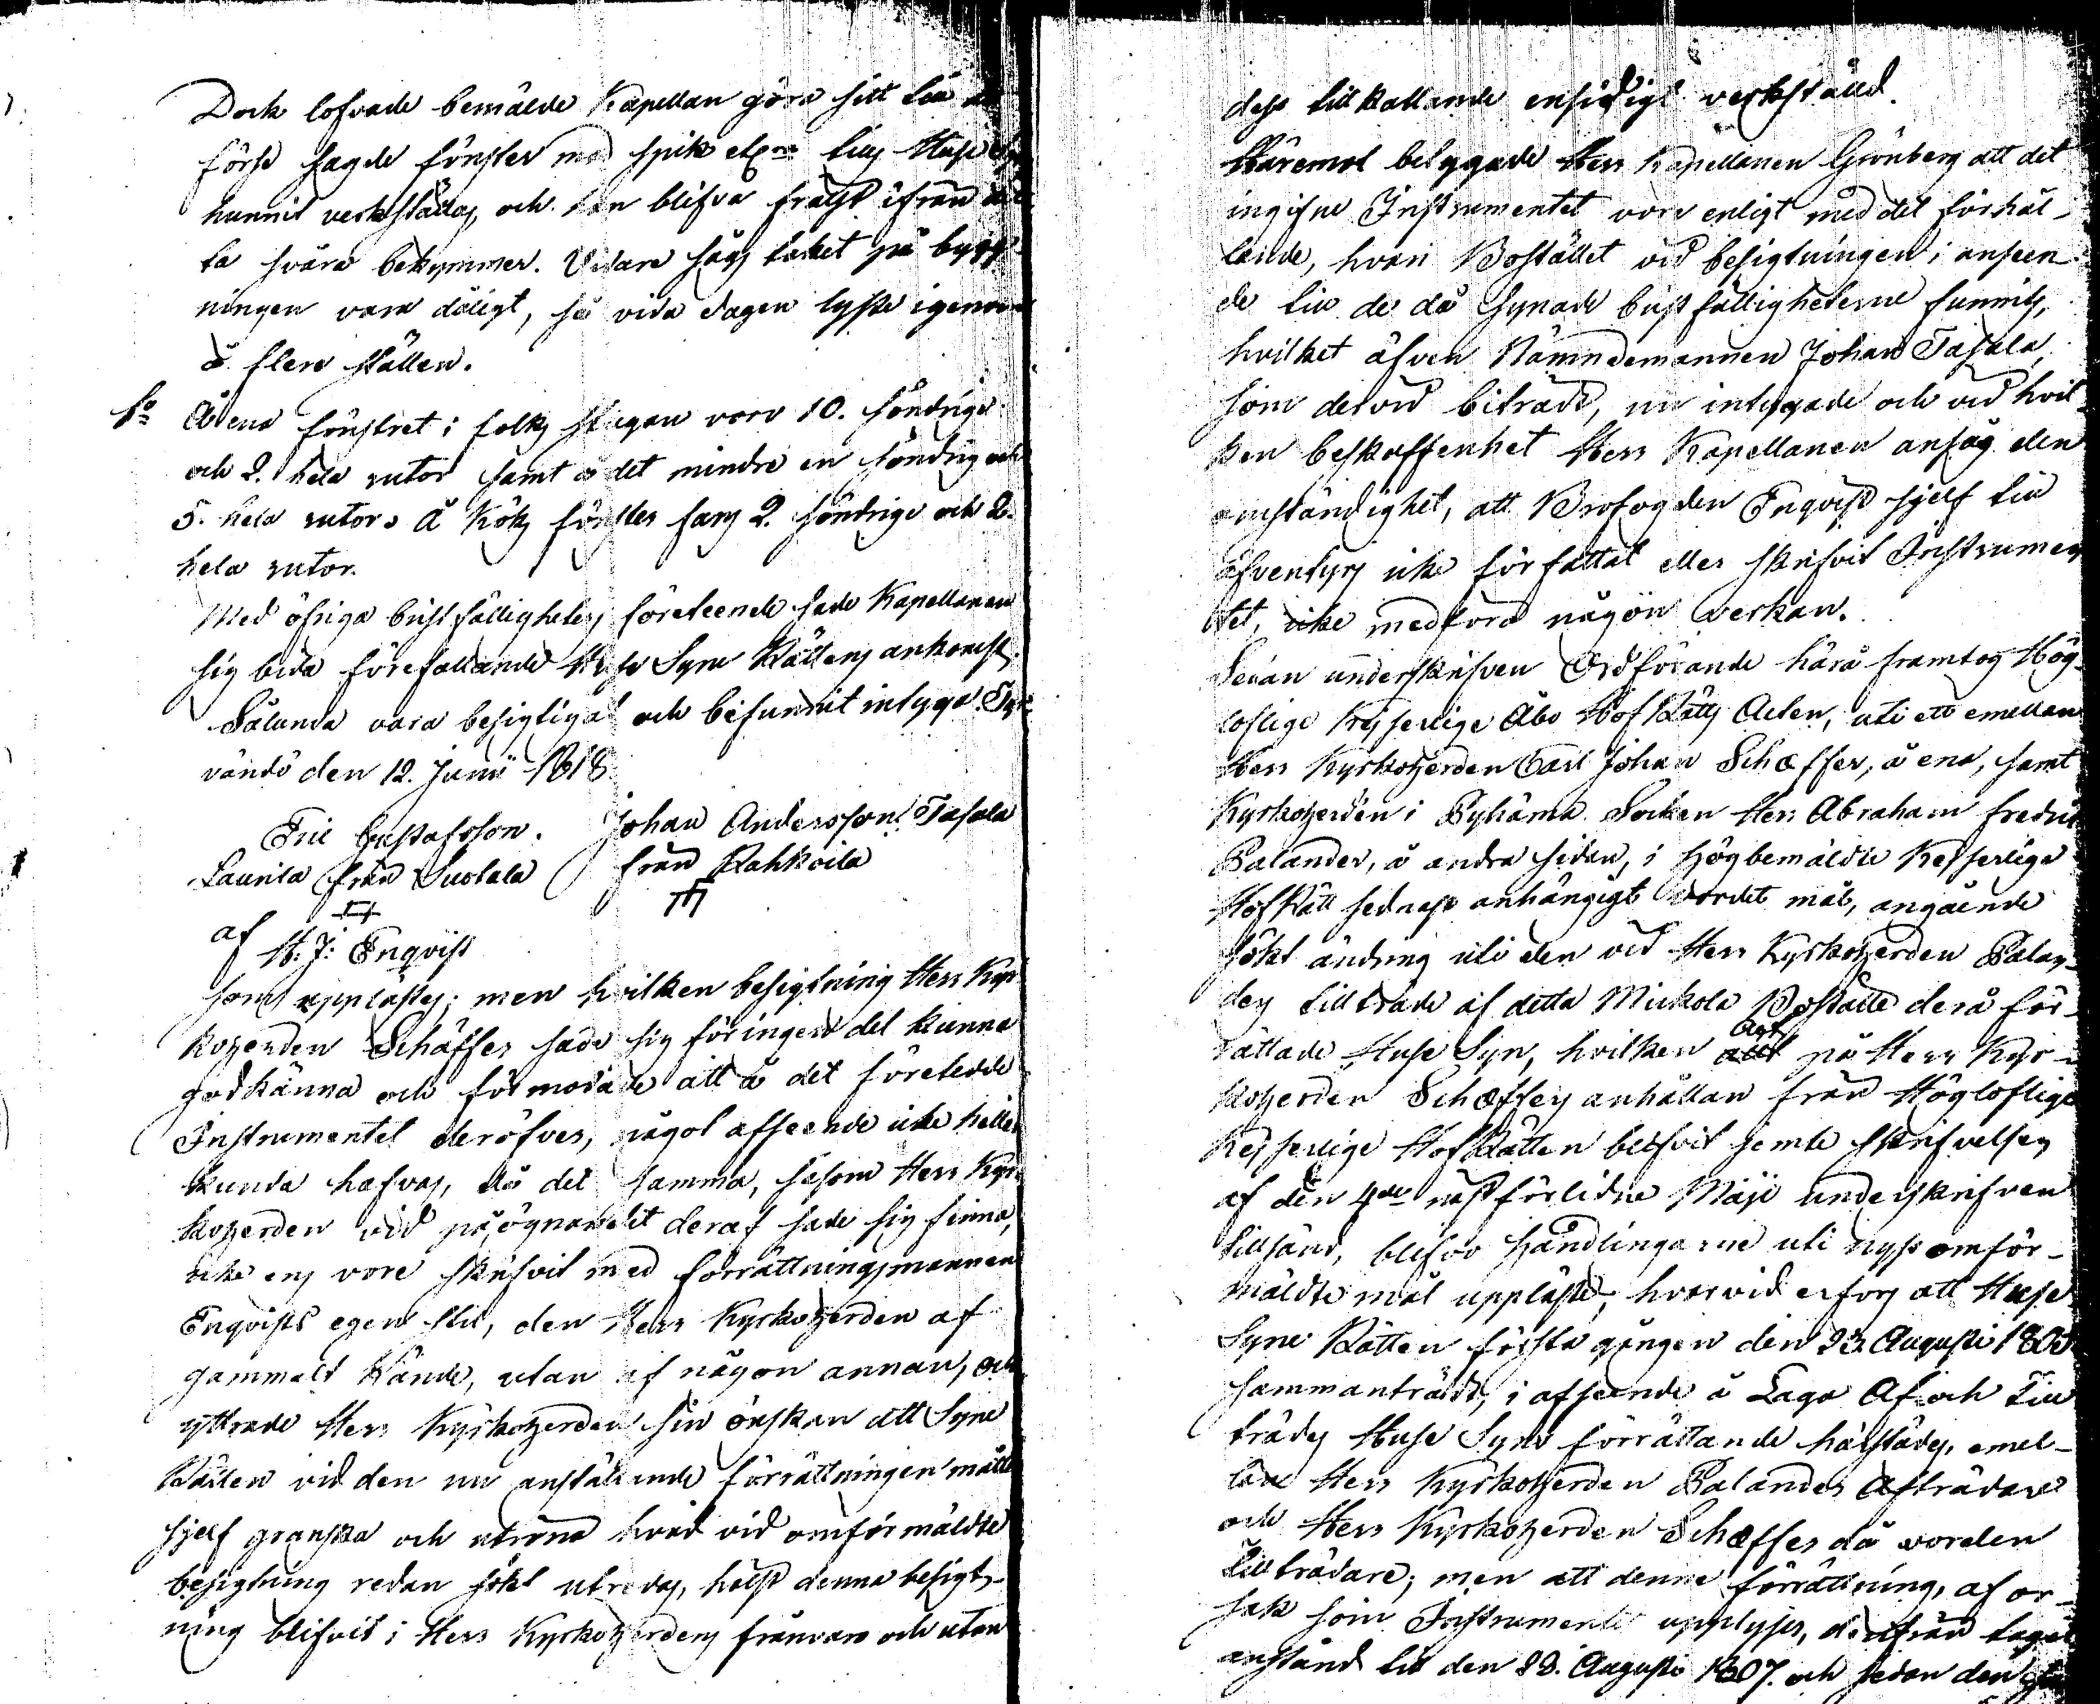 Dock lofvade bemälde Kapellan göra sitt till att
förse sagde fönster med spik etc:ra tills Huse Syn
hunnit verkställas, och han blifva frälst ifrån det
ta svåra bekymmer. Vidare sågs taket på bygg-
ningen vara dåligt, så vida dagen lyste igenom
å flere ställen.
Å ena fönstret i folks stugan voro 10. söndrige
och 2. hela rutor samt å det mindre en söndrig och
5. hela rutor. Å Köks fönster fans 2. söndrige och 2.
hela rutor.
Med öfriga bristfälligheters företeende sade Kapellanen
sig bida förefallande Huse Syne Rättens ankomst.
Sålunda vara besigtigat och befunnit intyga. Tyr-
vändö den 12. Junii 1818
Eric Gustafsson. Johan Andersson Tasala
Laurila från Suolala från Rahkoila
af
H. J: Enqvist
som upplästes; men hvilken besigtning Herr Kyr-
koherden Schæffer sade sig för ingen del kunna
godkänna och förmodade att å det företedde
Instrumentet deröfver, något afseende icke heller
kunde hafvas, då det samma, såsom Herr Kyr-
koherden vid påögnandet deraf sade sig finna,
icke ens vore skrifvit med förrättningsmannen
Enqvists egen stil, den Herr Kyrkoherden af
gammalt kände, utan af någon annan, och
yttrade Herr Kyrkoherden sin önskan att Syne
Rätten vid den nu anstälda förrättningen måtte
sjelf granska och utröna hvad vid omförmäldte
besigtning redan sökt utredas, hälst denna besigt-
ning blifvit i Herr Kyrkoherdens frånvaro och utan
dess tillkallande ensidigt verkstäld.
Häremot betygade Herr Kapellanen Grönberg att det
ingifne Instrumentet vore enligt med det förhål-
lande, hvari Bostället vid besigtningen i anseen-
de till de då synade bristfälligheterne funnits,
hvilket äfven Nämndemannen Johan Tasala,
som dervid biträdt, nu intygade och vid hvil-
ken beskaffenhet Herr Kapellanen ansåg den
omständighet, att Brofogden Enqvist sjelf till
äfventyrs icke författat eller skrifvit Instrumen
tet, icke medföra någon verkan.
Sedan underskrifven Ordförande härå framtog Hög-
loflige Kejserlige Åbo Hof Rätts Acten, uti ett emellan
Herr Kyrkoherden Carl Johan Schæffer, å ena, samt
Kyrkoherden i Pyhämä Socken Herr Abraham Fredric
Palander, å andra sidan, i högbemäldte Kejserlige
Hof Rätt sednast anhängigt vordet mål, angående
sökt ändring uti den vid Herr Kyrkoherden Palan-
ders tillträde af detta Mickola Boställe derå för-
rättade Huse Syn, hvilken Act på Herr Kyr-
koherden Schæffers anhållan från Högloflige
Kejserlige Hof Rätten blifvit jemte skrifvelsen
af den 4de nästförlidne Maji underskrifven
tillsänd, blefvo handlingarne uti nyssomför-
mäldte mål uppläste, hvarvid erfors att Huse
Syne Rätten första gången den 23. Augusti 1805
sammanträdt, i afseende å Laga Af och Till
trädes Huse Syns förrättande härstädes, emel-
lan Herr Kyrkoherden Palander Afträdare
och Herr Kyrkoherden Schæffer då vorden
Tillträdare; men att denne förrättning, af or-
sak som Instrumentet upplyser, derifrån tagit
anstånd till den 23. Augusti 1807. och sedan den